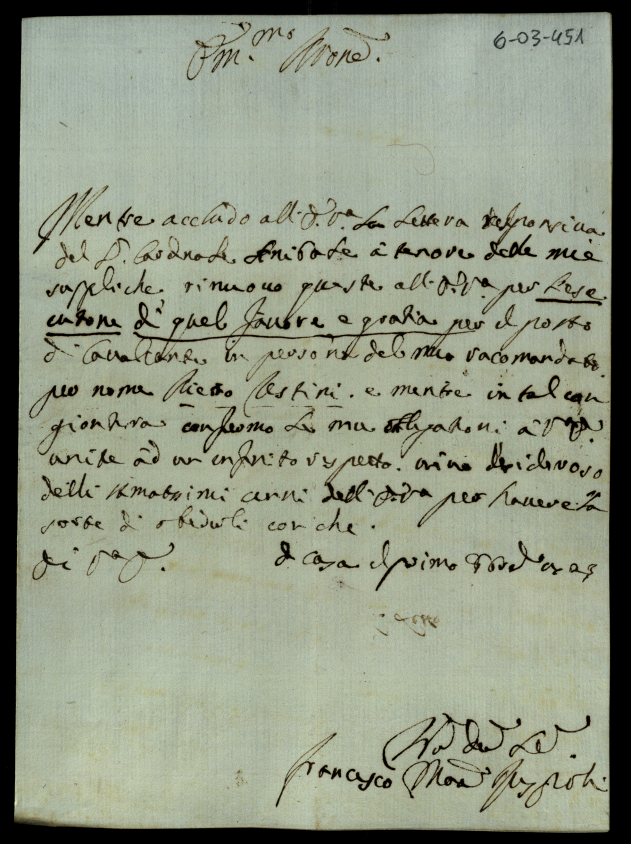 6-03-451
Mentre accludo all V.ra la lettera responsiva
del S.r Cardinale Anibale à tenore delle mie
suppliche rinuovo queste all V.ra per l'ese
cutone di quel favore e gratia per il posto
di Cavalcante in persona del mio racomandato
per nome Pietro Testini. e mentre in tal con
giontura confermo le mie obligationi à V.
unite ad un infinito rispetto. vivo desideroso
delli stimatissimi cenni dell V.ra per havere la
sorte di obedirli con che.
di V.
di casa il primo
Francesco Mar Ruspoli